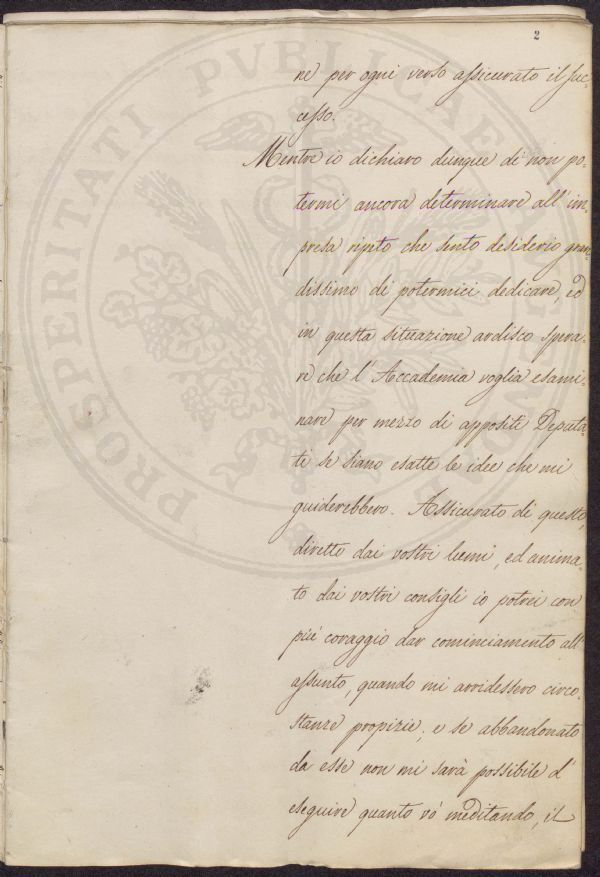 2
ne per ogni verso assicurato il suc-
cesso.
Mentre io dichiaro dunque di non po-
termi ancora determinare all'im-
presa ripeto che sento desiderio gran-
dissimo di potermici dedicare, ed
in questa situazione ardisco spera-
re che l'Accademia voglia esami-
nare per mezzo di appositi Deputa-
ti se siano esatte le idee che mi
guiderebbero. Assicurato di questo,
diretto dai vostri lumi, ed anima-
to dai vostri consigli io potrei con
più coraggio dar cominciamento all'
assunto, quando mi arridessero circo-
stanze propizie, e se abbandonato
da esse non mi sarà possibile d'
eseguire quanto vò meditando, il
PROSPERITATI PVBLICAE AVGENDAE